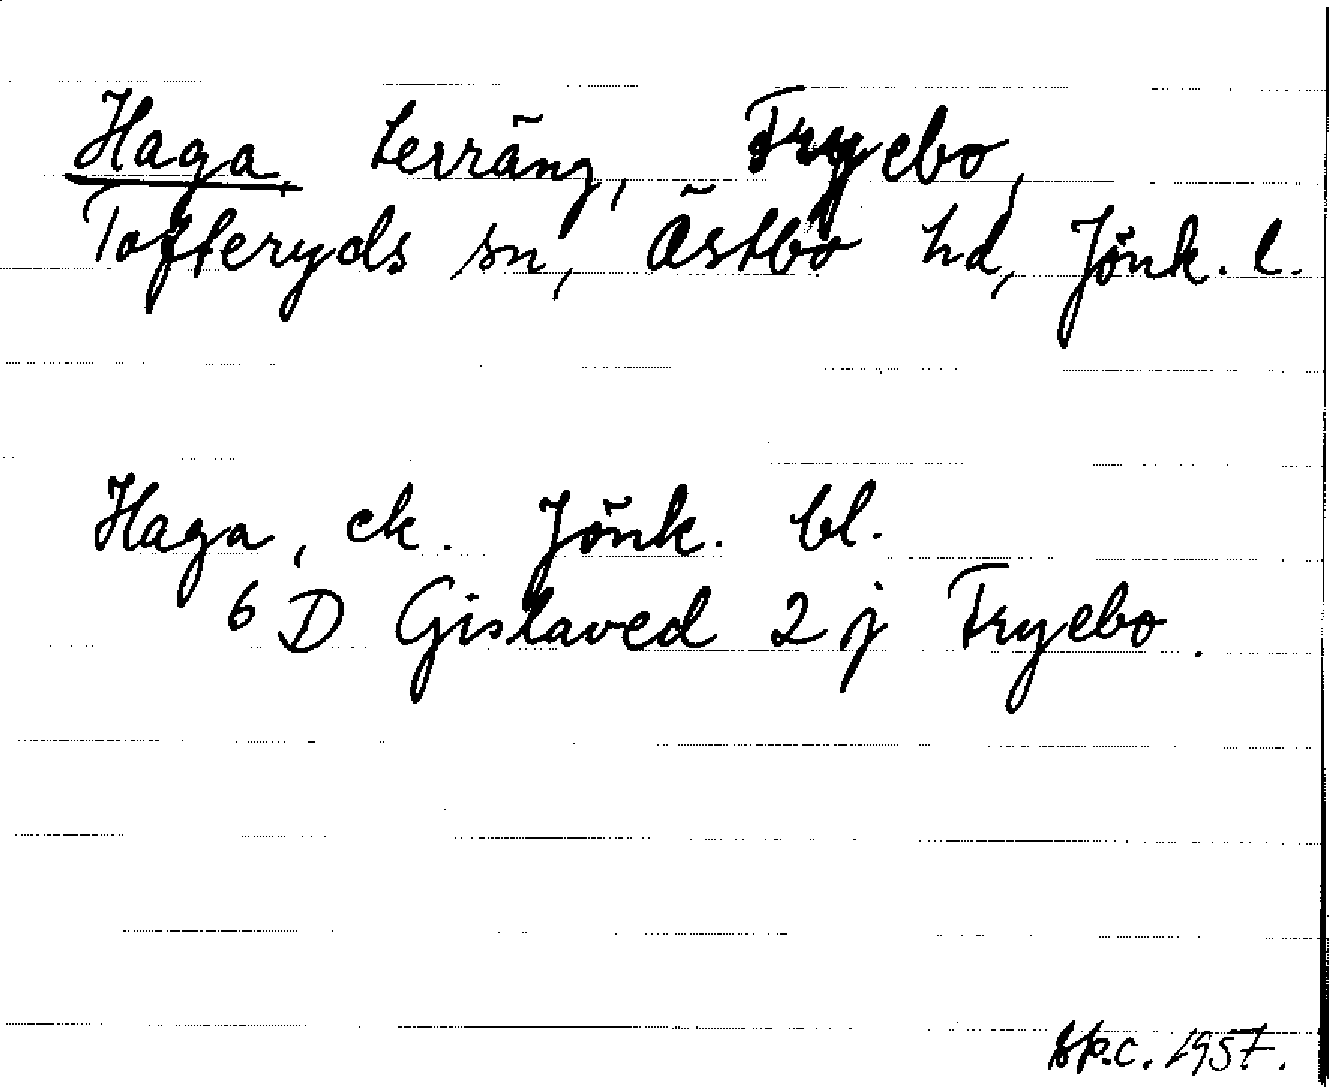 Haga, terräng, Fryebo,
Tofteryds sn, Östbo hd, Jönk. l.
Haga, ek. Jönk. bl.
6 D Gislaved 2 j Fryebo.
sp.c. 1957.